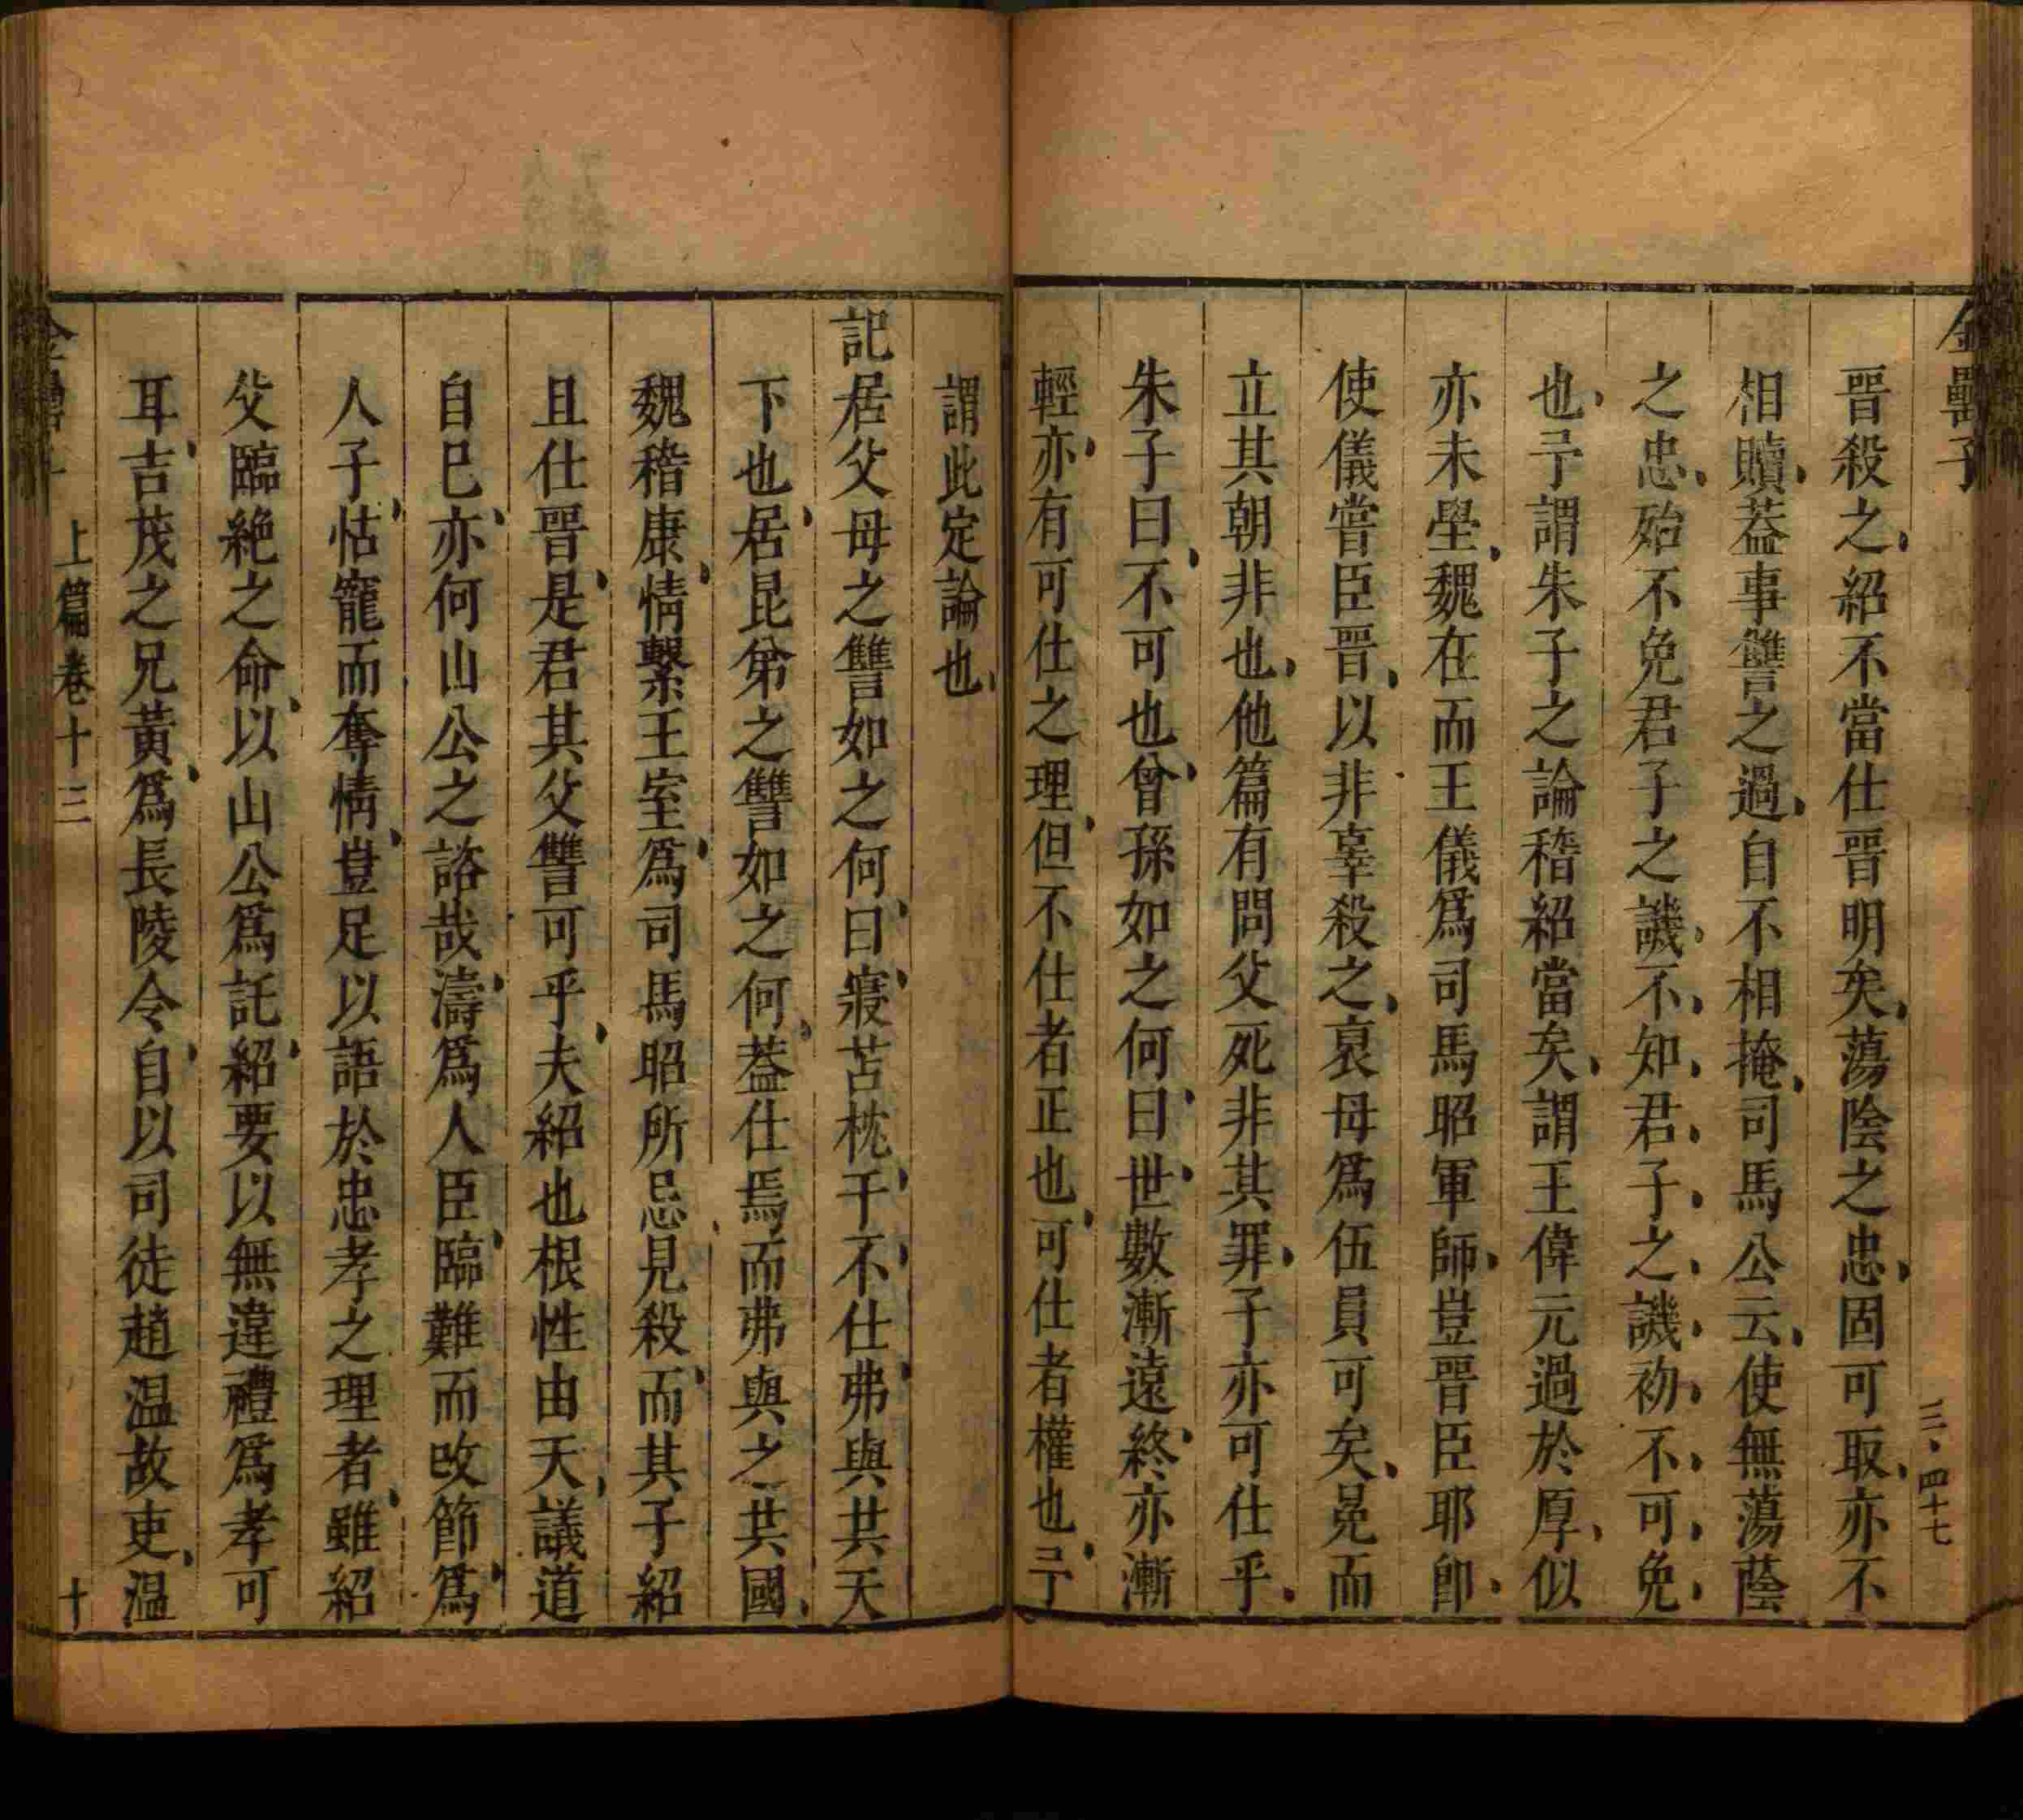 金罍子
三・四十七
晋殺之紹不當仕晋明矣蕩陰之忠固可取亦不
相贖葢事讐之過自不相掩司馬公云使無蕩蔭
之忠殆不免君子之譏不知君子之譏初不可免
也予謂朱子之論稽紹當矣謂王偉元過於厚似
亦未瑩魏在而王儀爲司馬昭軍師豈晋臣耶卽
使儀嘗臣晋以非辜殺之裒毋爲伍員可矣晃而
立其朝非也他篇有問父死非其罪子亦可仕乎
朱子曰不可也曾孫如之何曰世數漸遠終亦漸
輕亦有可仕之理但不仕者正也可仕者權也予
謂此定論也
記居父母之讐如之何曰寢苫枕干不仕弗與共天
下也居昆弟之讐如之何葢仕焉而弗與之共國
魏稽康情繫王室爲司馬昭所忌見殺而其子紹
且仕晋是君其父讐可乎夫紹也根性由天議道
自巳亦何山公之諮哉濤爲人臣臨難而改節爲
人子怙寵而奪情豈足以語於忠孝之理者雖紹
父臨絶之命以山公爲託紹要以無違禮爲孝可
耳吉茂之兄黃爲長陵令自以司徒趙温故吏温
上篇卷十三
十